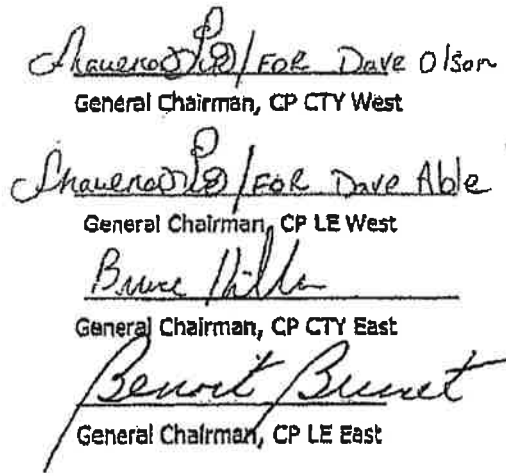 /FOR Dave Olson
General Chairman, CP CTY West
/FOR Dave Able
General Chairman, CP LE West
Bruce
General Chairman, CP CTY East
Benoit Brunet
General Chairman, CP LE East